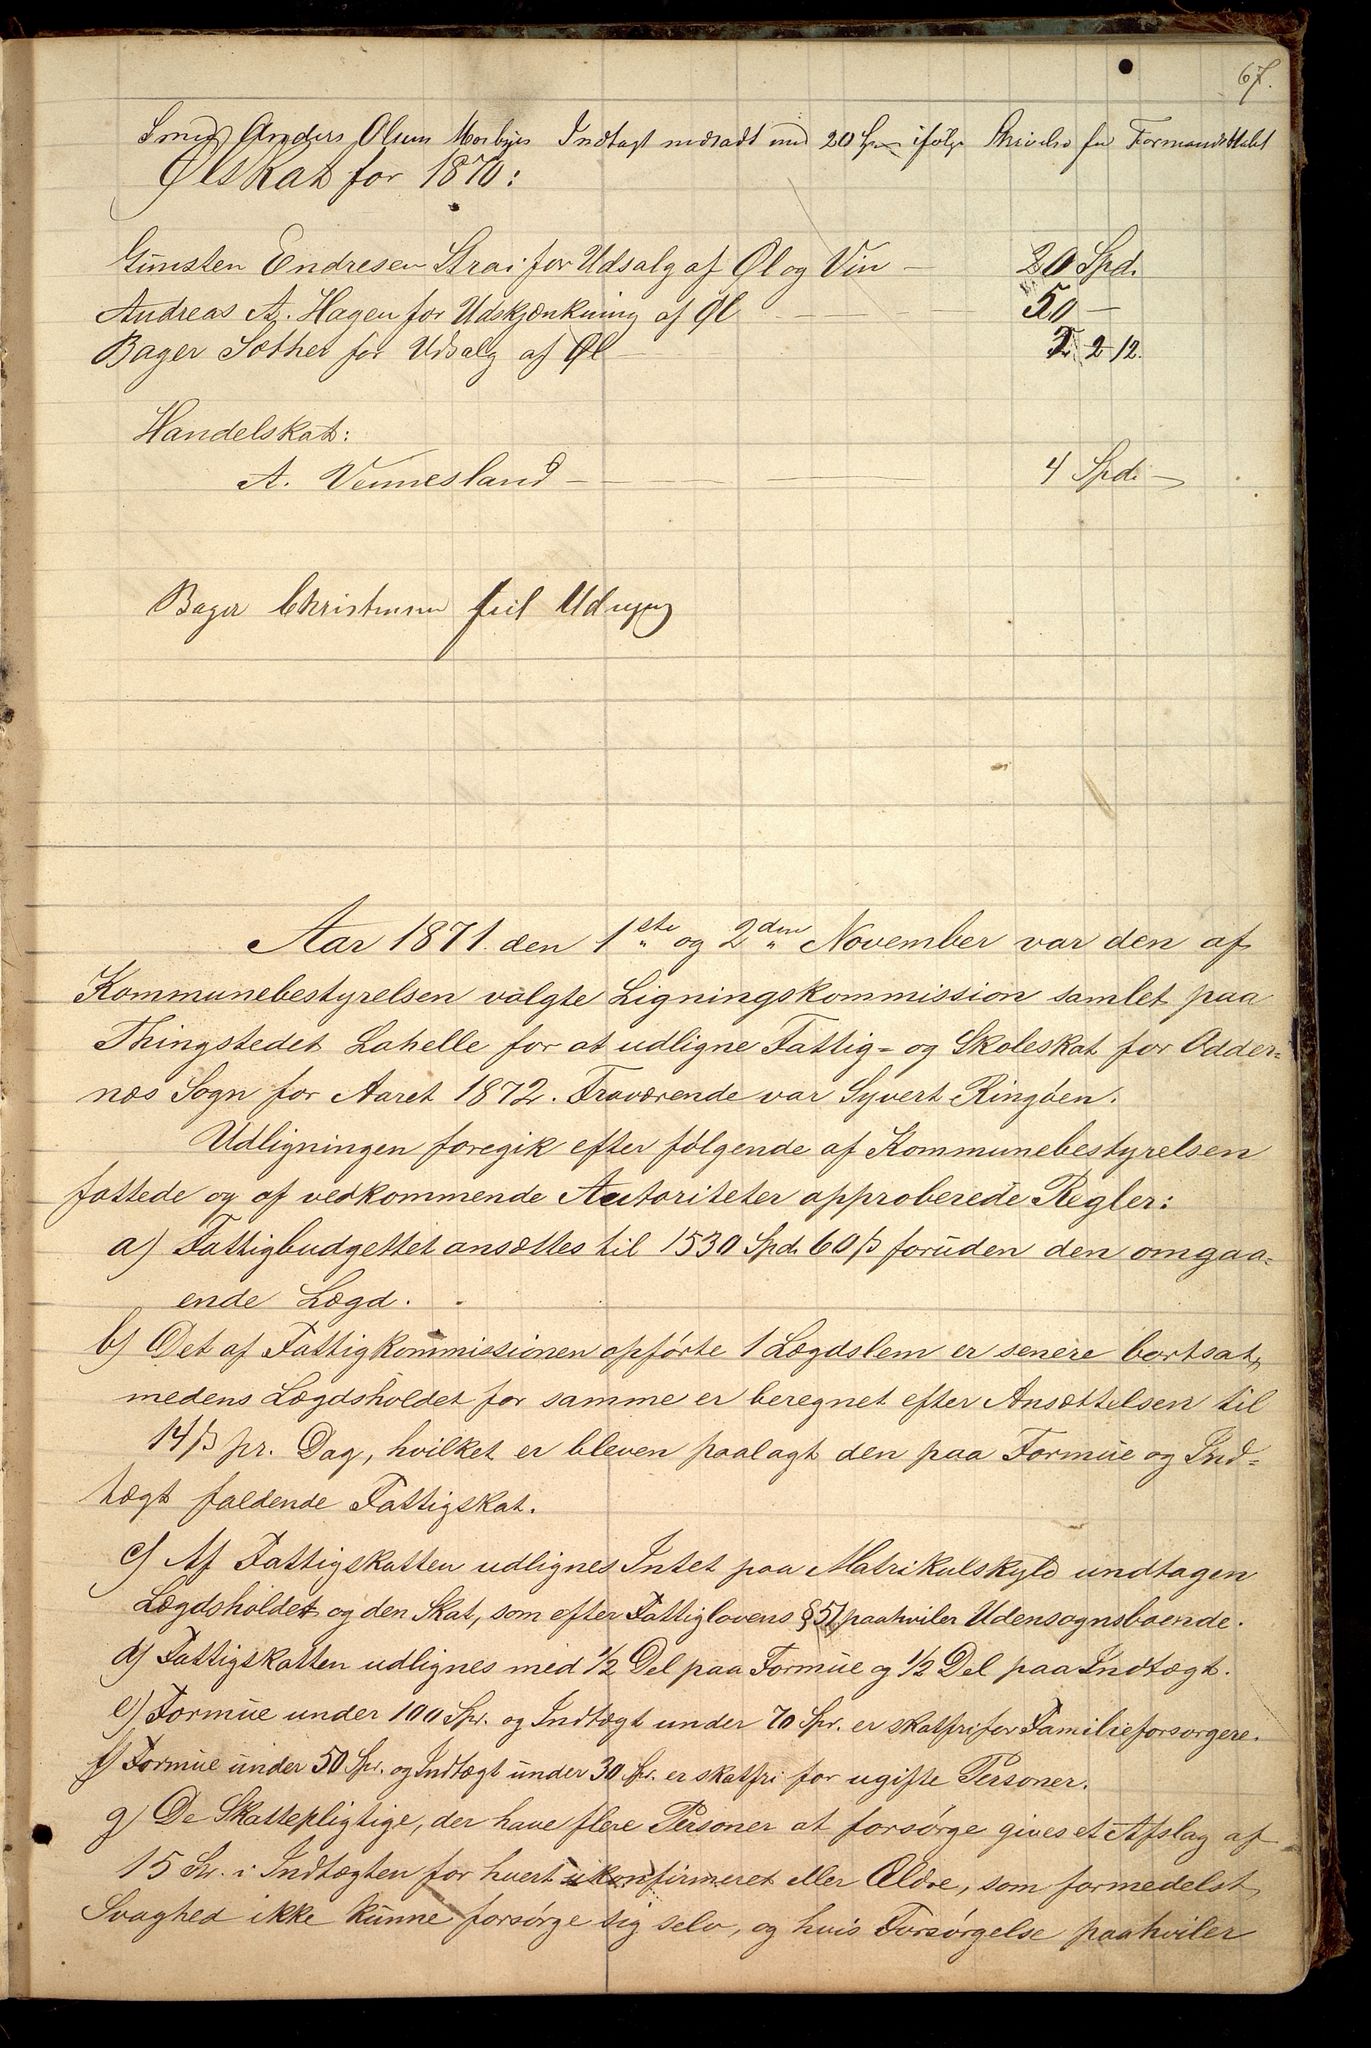 67.
Smed Anders Olsen Mosbyes Indtægt nedsadt med 20 Spr ifølge Skrivelse fra Formandskabet
Ølskat for 1870:
Gunsten Endresen Strai for Udsalg af Øl og Vin — 20 Spd.
Andreas A. Hagen for Udskjænkning af Øl - — — — 50 —
Bager Sæther for Udsalg af Øl — 2 12.
Handelskat:
A. Vennesland — — — — 4 Spd. —
Bager Christensen feil
Aar 1871. den 1ste og 2den November var den af
Kommunebestyrelsen valgte Ligningskommission samlet paa
Thingstedet Lahelle for at udligne Fattig- og Skoleskat for Odder-
næs Sogn for Aaret 1872. Fraværende var Syvert Ringøen.
Udligningen foregik efter følgende af Kommunebestyrelsen
fattede og af vedkommende Autoriteter approberede Regler:
a) Fattigbudgettet ansættes til 1530 Spd. 60 ß foruden den omgaa-
ende Lægd.
b) Det af Fattigkommissionen opførte 1 Lægdslem er senere bortsat,
medens Lægdsholdet for samme er beregnet efter Ansættelsen til
14 ß pr. Dag, hvilket er bleven paalagt den paa Formue og Ind-
tægt faldende Fattigskat.
c) Af Fattigskatten udlignes Intet paa Matrikulskyld undtagen
Lægdsholdet og den Skat, som efter Fattiglovens § 51 paahviler Udensognsboende.
d) Fattigskatten udlignes med 1/2 Del paa Formue og 1/2 Del paa Indtægt.
e) Formue under 100 Spr. og Indtægt under 70 Spr. er skatfri for Familieforsorgere.
f) Formue under 50 Spr. og Indtægt under 30 Spr. er skatfri for ugifte Personer.
g) De Skattepligtige, der have flere Personer at forsørge gives et Afslag af
15 Spr. i Indtægten for hvert ukonfirmeret eller Ældre, som formedelst
Svaghed ikke kunne forsørge sig selv, og hvis Forsørgelse paahviler